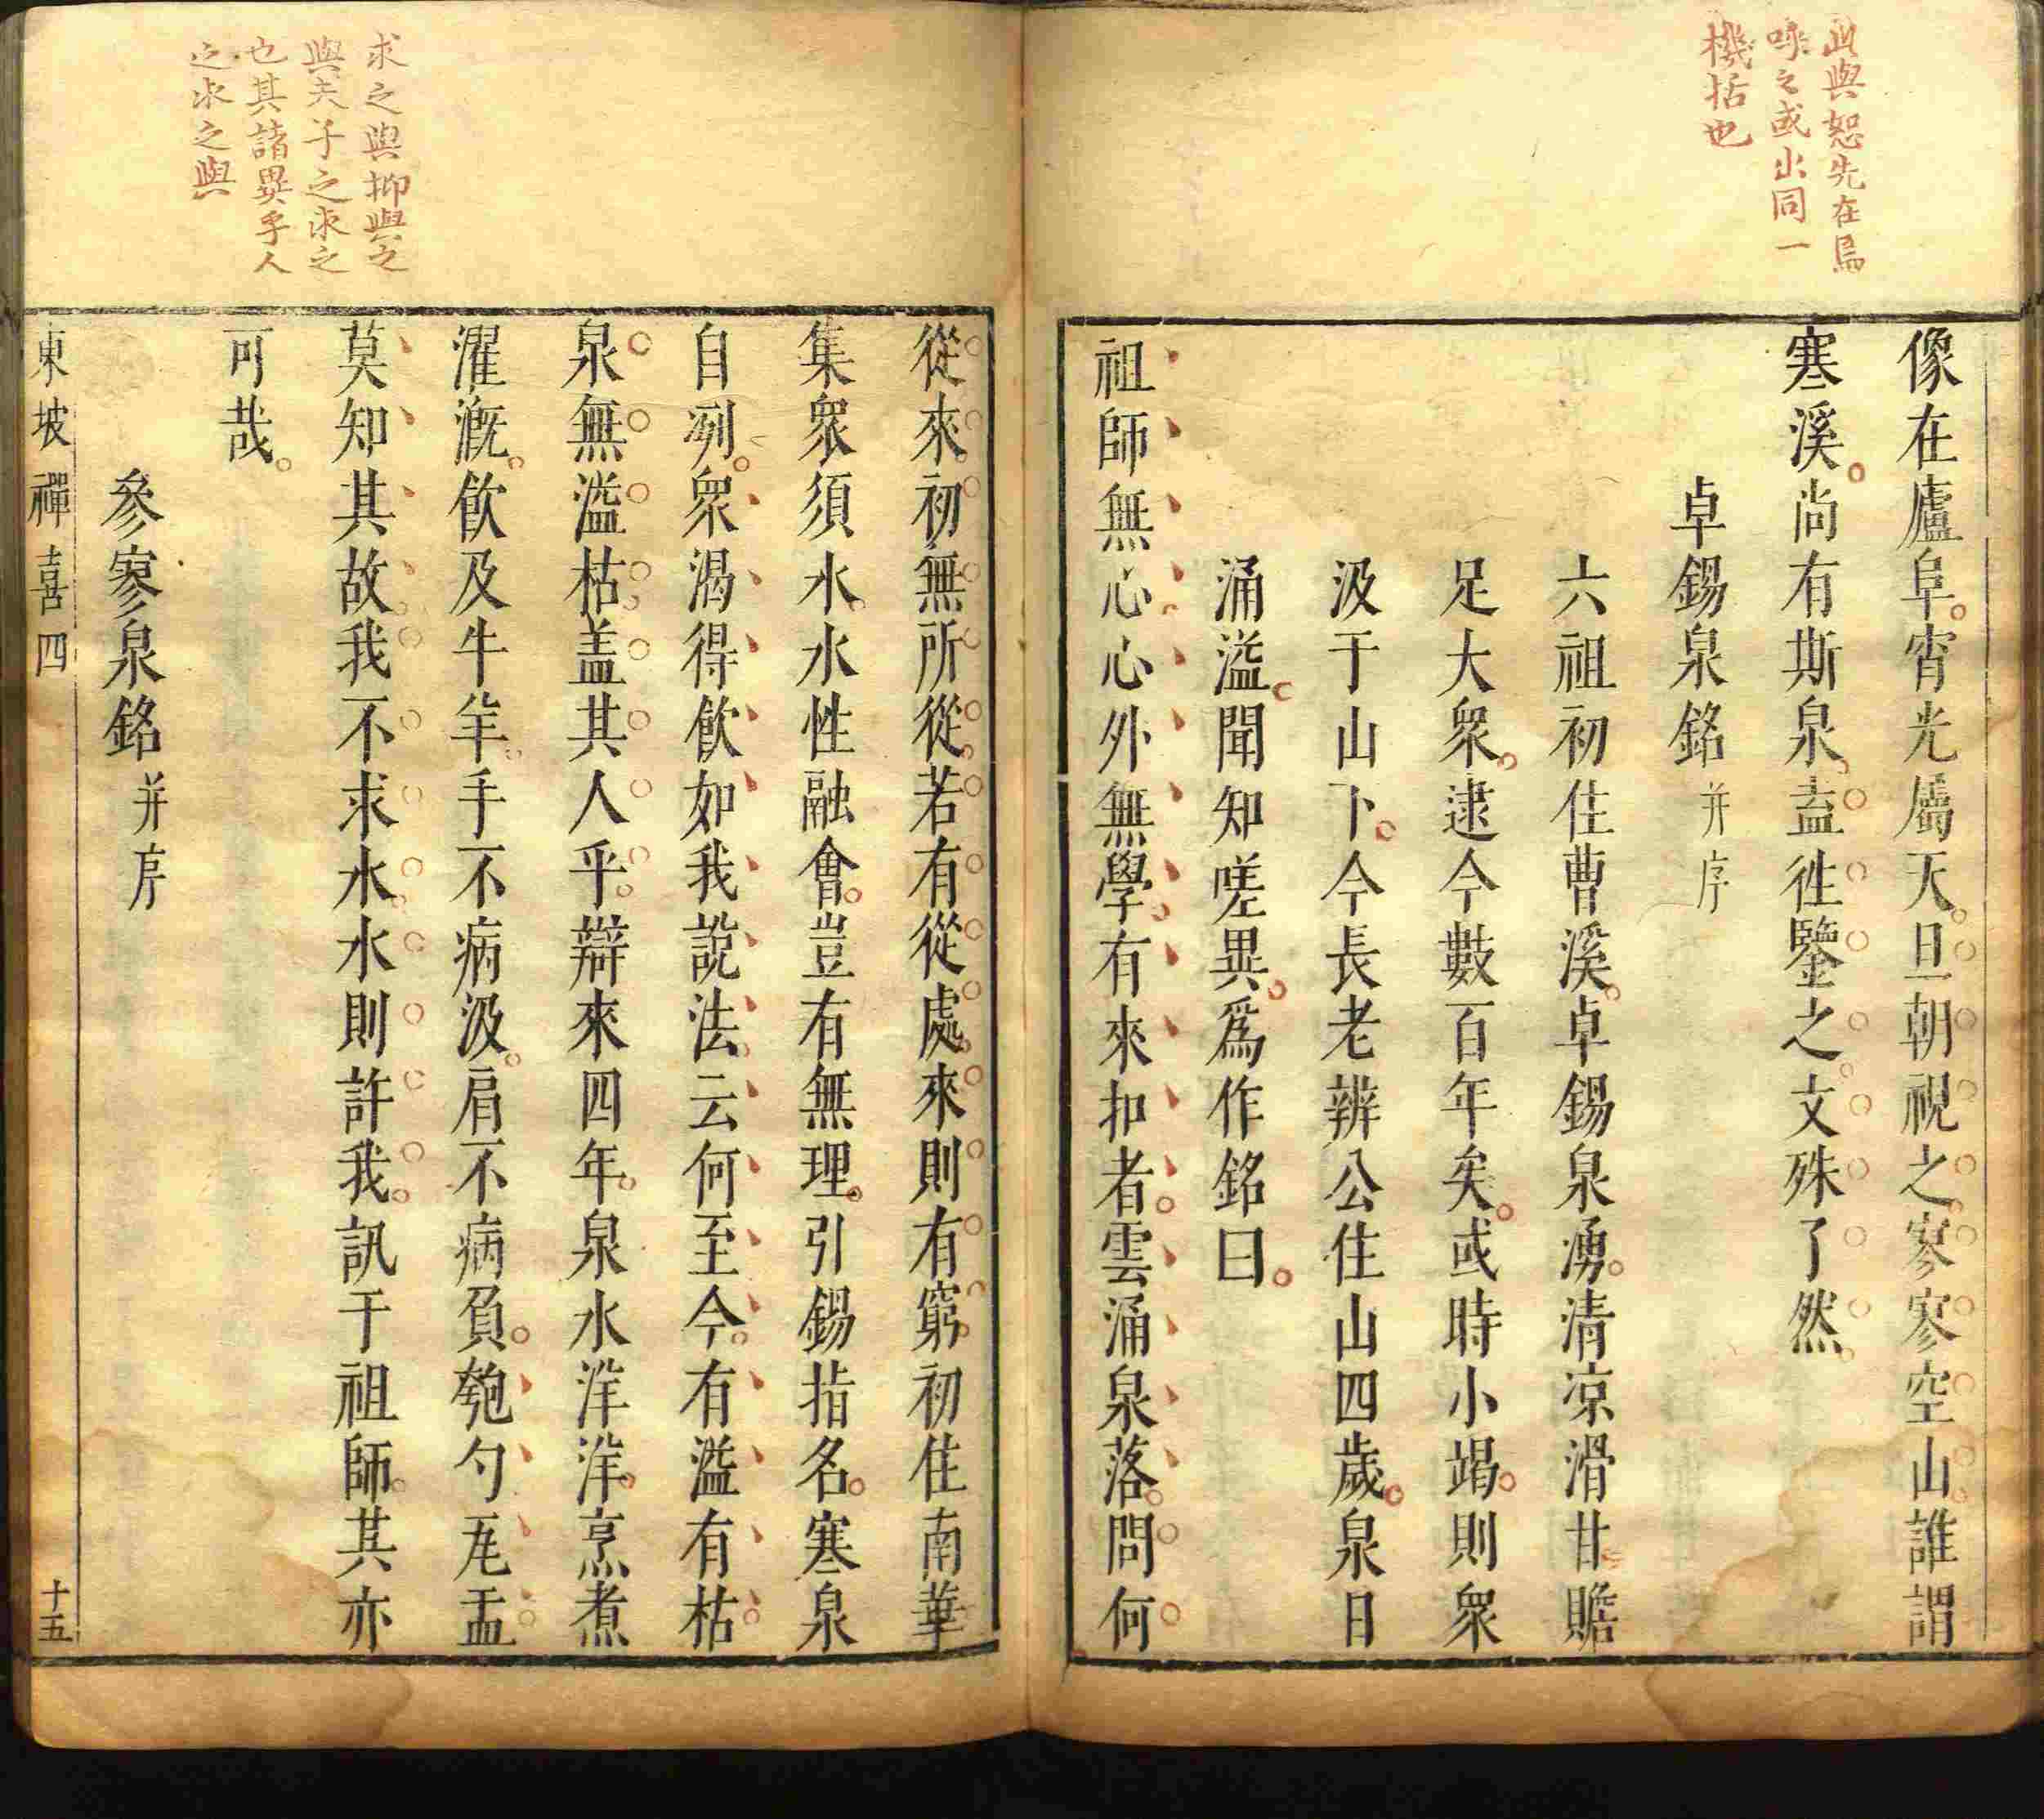 此與恕先在焉
呼之或出同一
機括也
像在廬阜宵光屬天旦朝視之寥寥空山誰謂
寒溪尚有斯泉盍徃鑒之文殊了然
卓錫泉銘并序
六祖初住曹溪卓錫泉湧清凉滑甘贍
足大衆逮今數百年矣或時小竭則衆
汲于山下今長老辨公住山四歲泉日
涌溢聞知嗟異爲作銘曰
祖師無心心外無學有來扣者雲涌泉落問何
求之與抑與之
與夫子之求之
也其諸異乎人
之求之與
從來初無所從若有從處來則有窮初住南華
集衆須水水性融會豈有無理引錫指名寒泉
自冽衆渴得飲如我說法云何至今有溢有枯
泉無溢枯盖其人乎辯來四年泉水洋洋烹煮
濯溉飲及牛羊手不病汲肩不病負匏勺瓦盂
莫知其故我不求水水則許我訊于祖師其亦
可哉
參寥泉銘并序
東坡禪喜四
十五